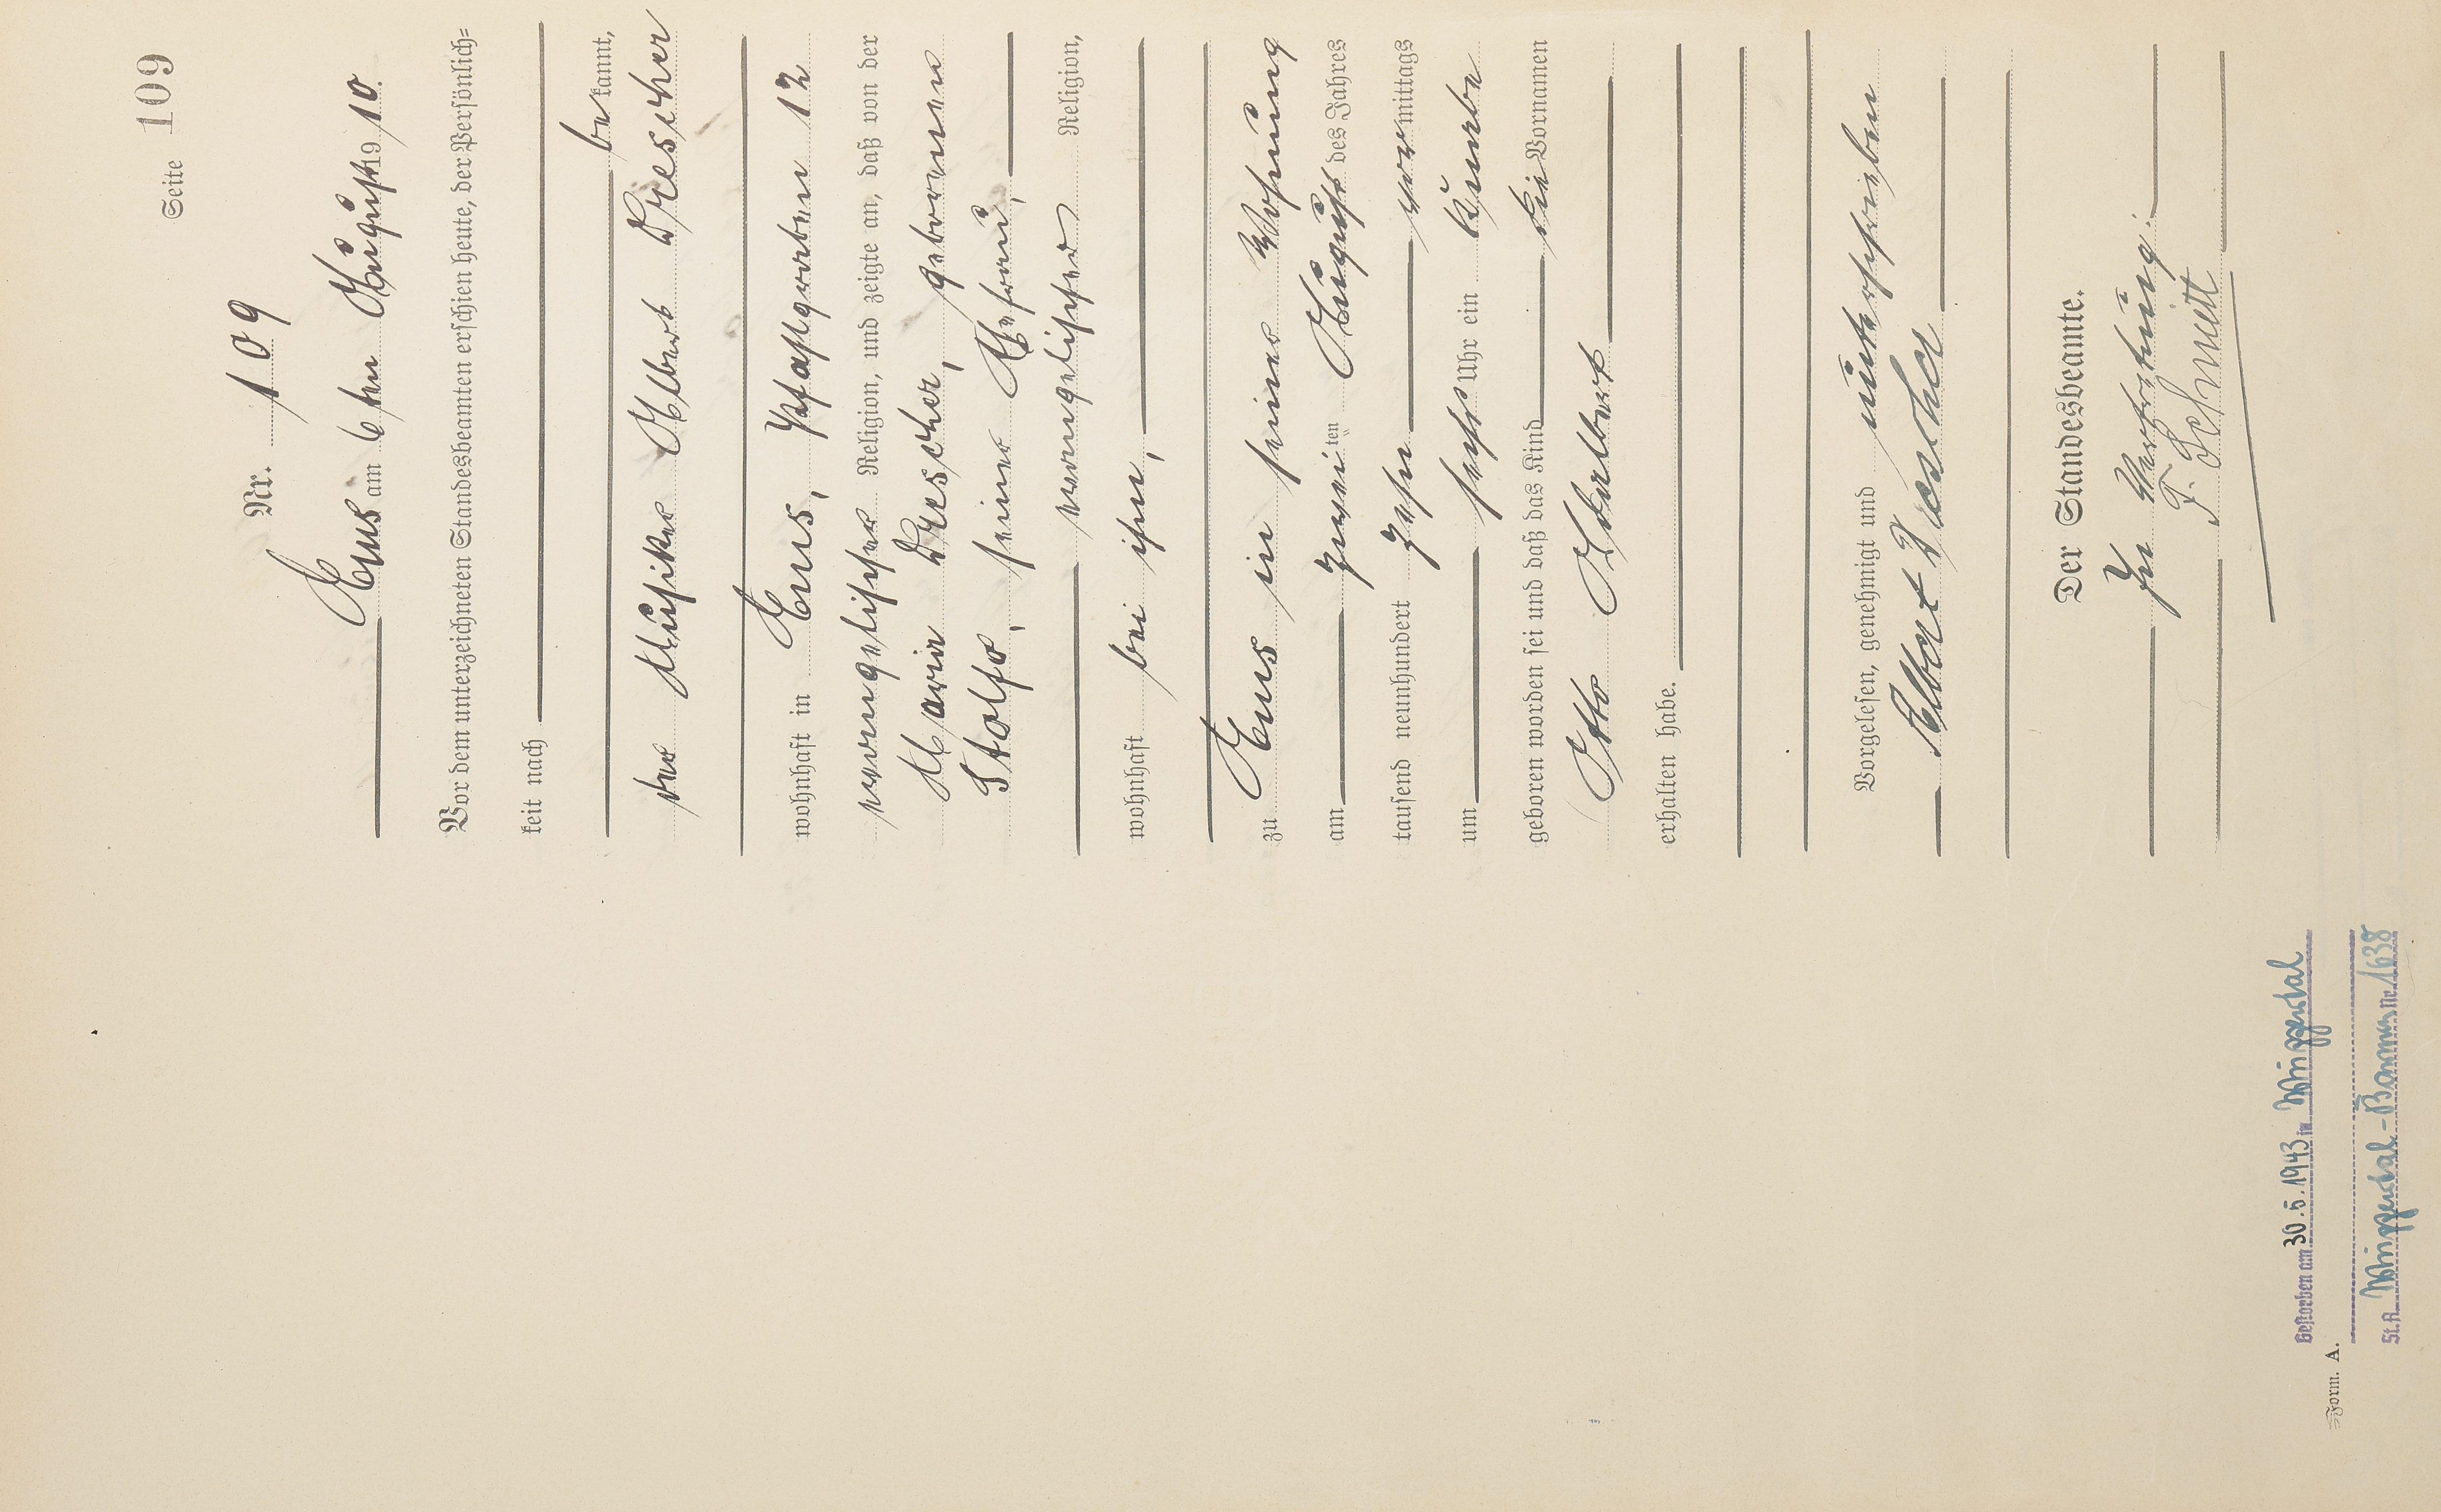 Seite 109
Nr. 109
Ems am 6ten August 1910.
Vor dem unterzeichneten Standesbeamten erschien heute, der Persönlich=
keit nach
bekannt,
der Musiker Albert Drescher
wohnhaft in Ems, Pfahlgraben 12
evangelischer Religion, und zeigte an, daß von der
Maria Drescher, geborenen
Stolfo, seiner Ehefrau,
evangelischer Religion,
wohnhaft bei ihm,
zu Ems in seiner Wohnung
am zweiten August des Jahres
tausend neunhundert zehn vormittags
um sechs Uhr ein Knabe
geboren worden sei und daß das Kind die Vornamen
Otto Adalbert
erhalten habe.
Vorgelesen, genehmigt und unterschrieben
Albert Drescher
Der Standesbeamte.
In Vertretung:
F. Schmitt
Gestorben am 30.5.1943 in Wuppertal
St.A. Wuppertal-Barmen Nr. 1638
Form. A.